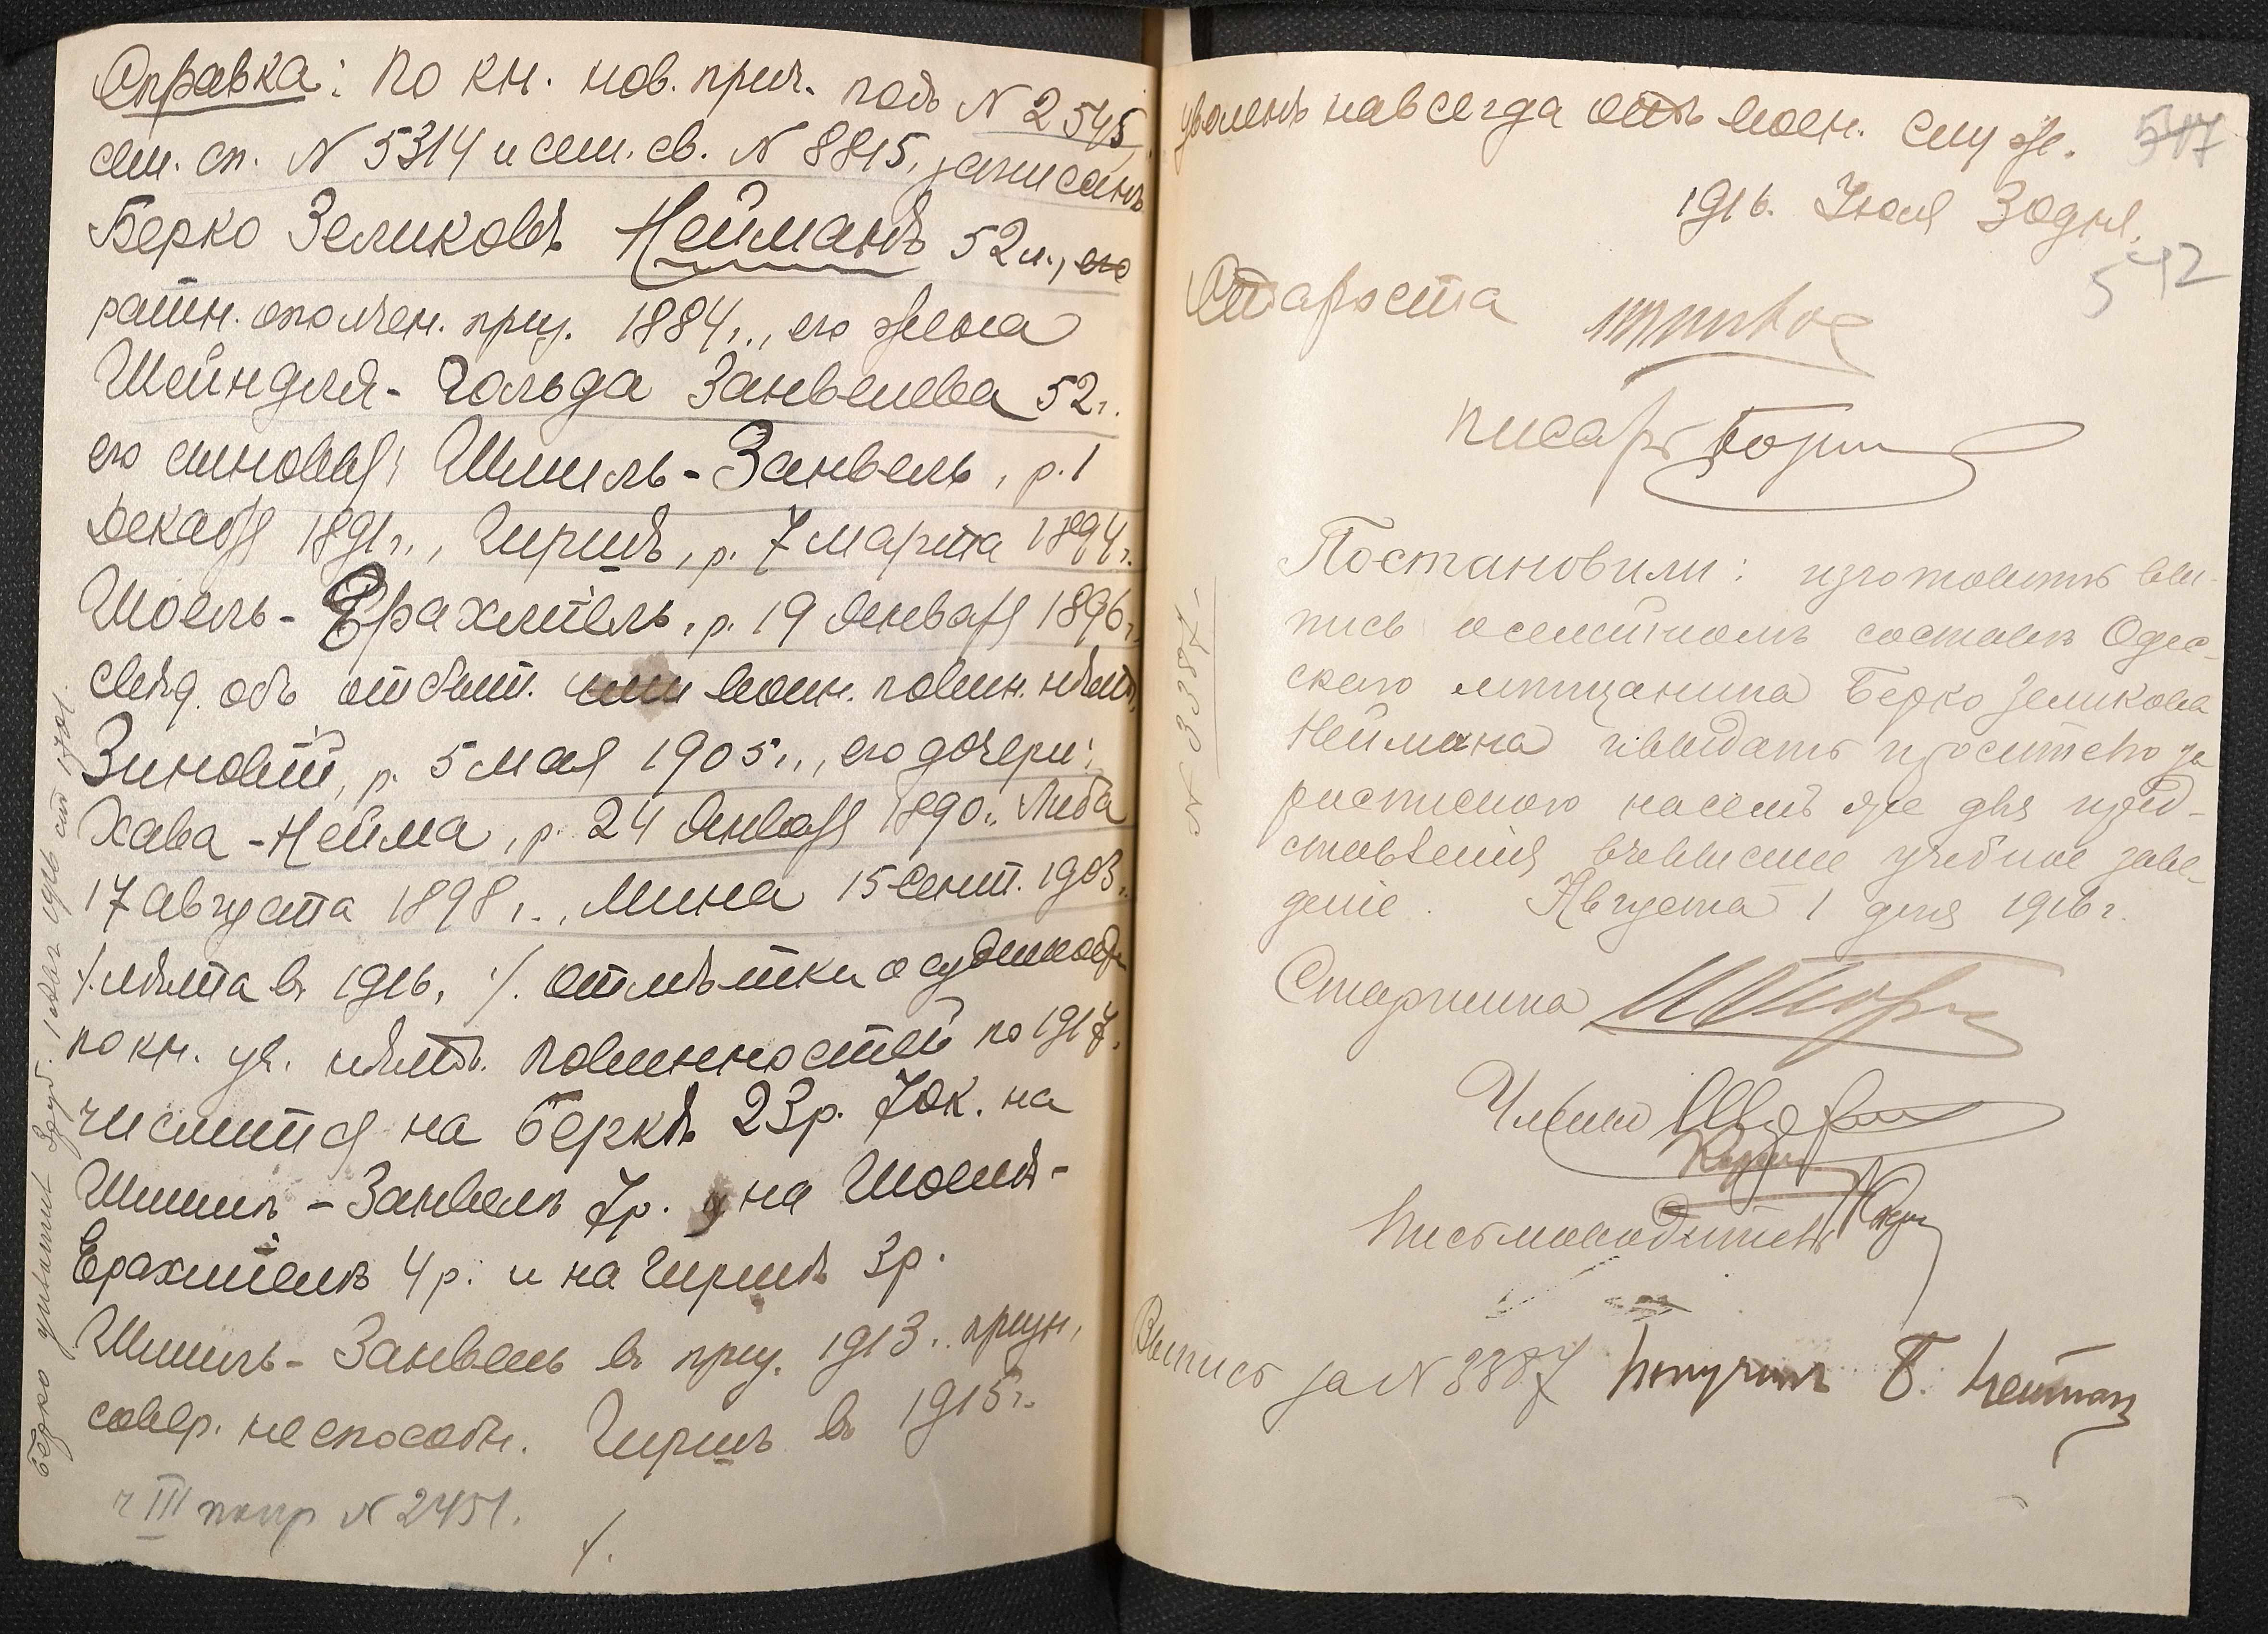 Справка: По кн. нов. прич. подъ N 2545,
сем. сп. N 5314 и сем. св. N 8815, записанъ
Берко Зеликовъ Нейманъ 52 л., его
ратн. ополчен. приз. 1884 г., его жена
Шейндля-Гольда Занвелева 52 г.
его сыновья: Шмиль-Занвель, р. 1
Декабря 1891 г., Гиршъ, р. 7 марта 1894 г.
Шоель-Ерахміель, р. 19 Января 1896 г.
свѣд. объ отбыт. ими воин. повин. нѣтъ,
Зиновій, р. 5 мая 1905 г., его дочери:
Хава-Нейма, р. 24 Января 1890 г. Люба
17 августа 1898 г., Мина 15 Сент. 1903 г.
/. лѣта въ 1916, /. отмѣтки о судимости
по кн. уч. мѣщ. повинностей по 1917 г.
числится на Беркѣ 23 р. 70 к. на
Шмилѣ-Занвелѣ 7 р. на Шоелѣ-
Ерахміелѣ 4 р. и на Гиршѣ 3 р.
Шмиль-Занвель въ приз. 1913 г. призн.
совер. неспособн. Гиршъ въ 1915 г.
ч III N 2451.
/.
Берко 1916
уволенъ навсегда отъ воен. служ.
517
1916 г. Іюля 30 дня.
542
Староста
писарь
Постановили: изготовить вы-
пись о семейномъ составѣ Одес-
скаго мѣщанина Берко Зеликова
Неймана и выдать просителю за
роспискою на семъ же для пред-
ставленія въ высшее учебное заве-
деніе. Августа 1 дня 1916 г.
N 3387
Старшина
Члены
Письмоводитель
Выпись за N 3387 получилъ Б. Нейманъ